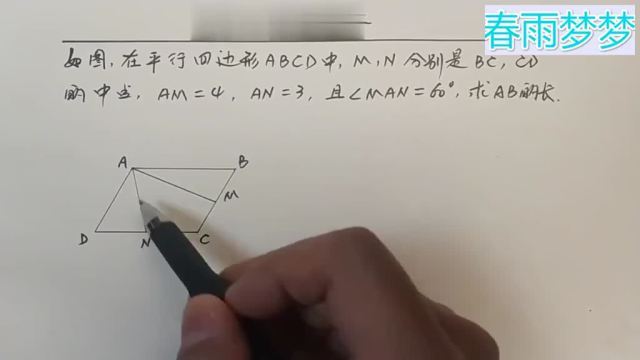 春雨梦梦
如图,在平行四边形ABCD中,M,N分别是BC,CD
的中点,AM=4,AN=3,且∠MAN=60°,求AB的长.
A
B
M
D
N
C